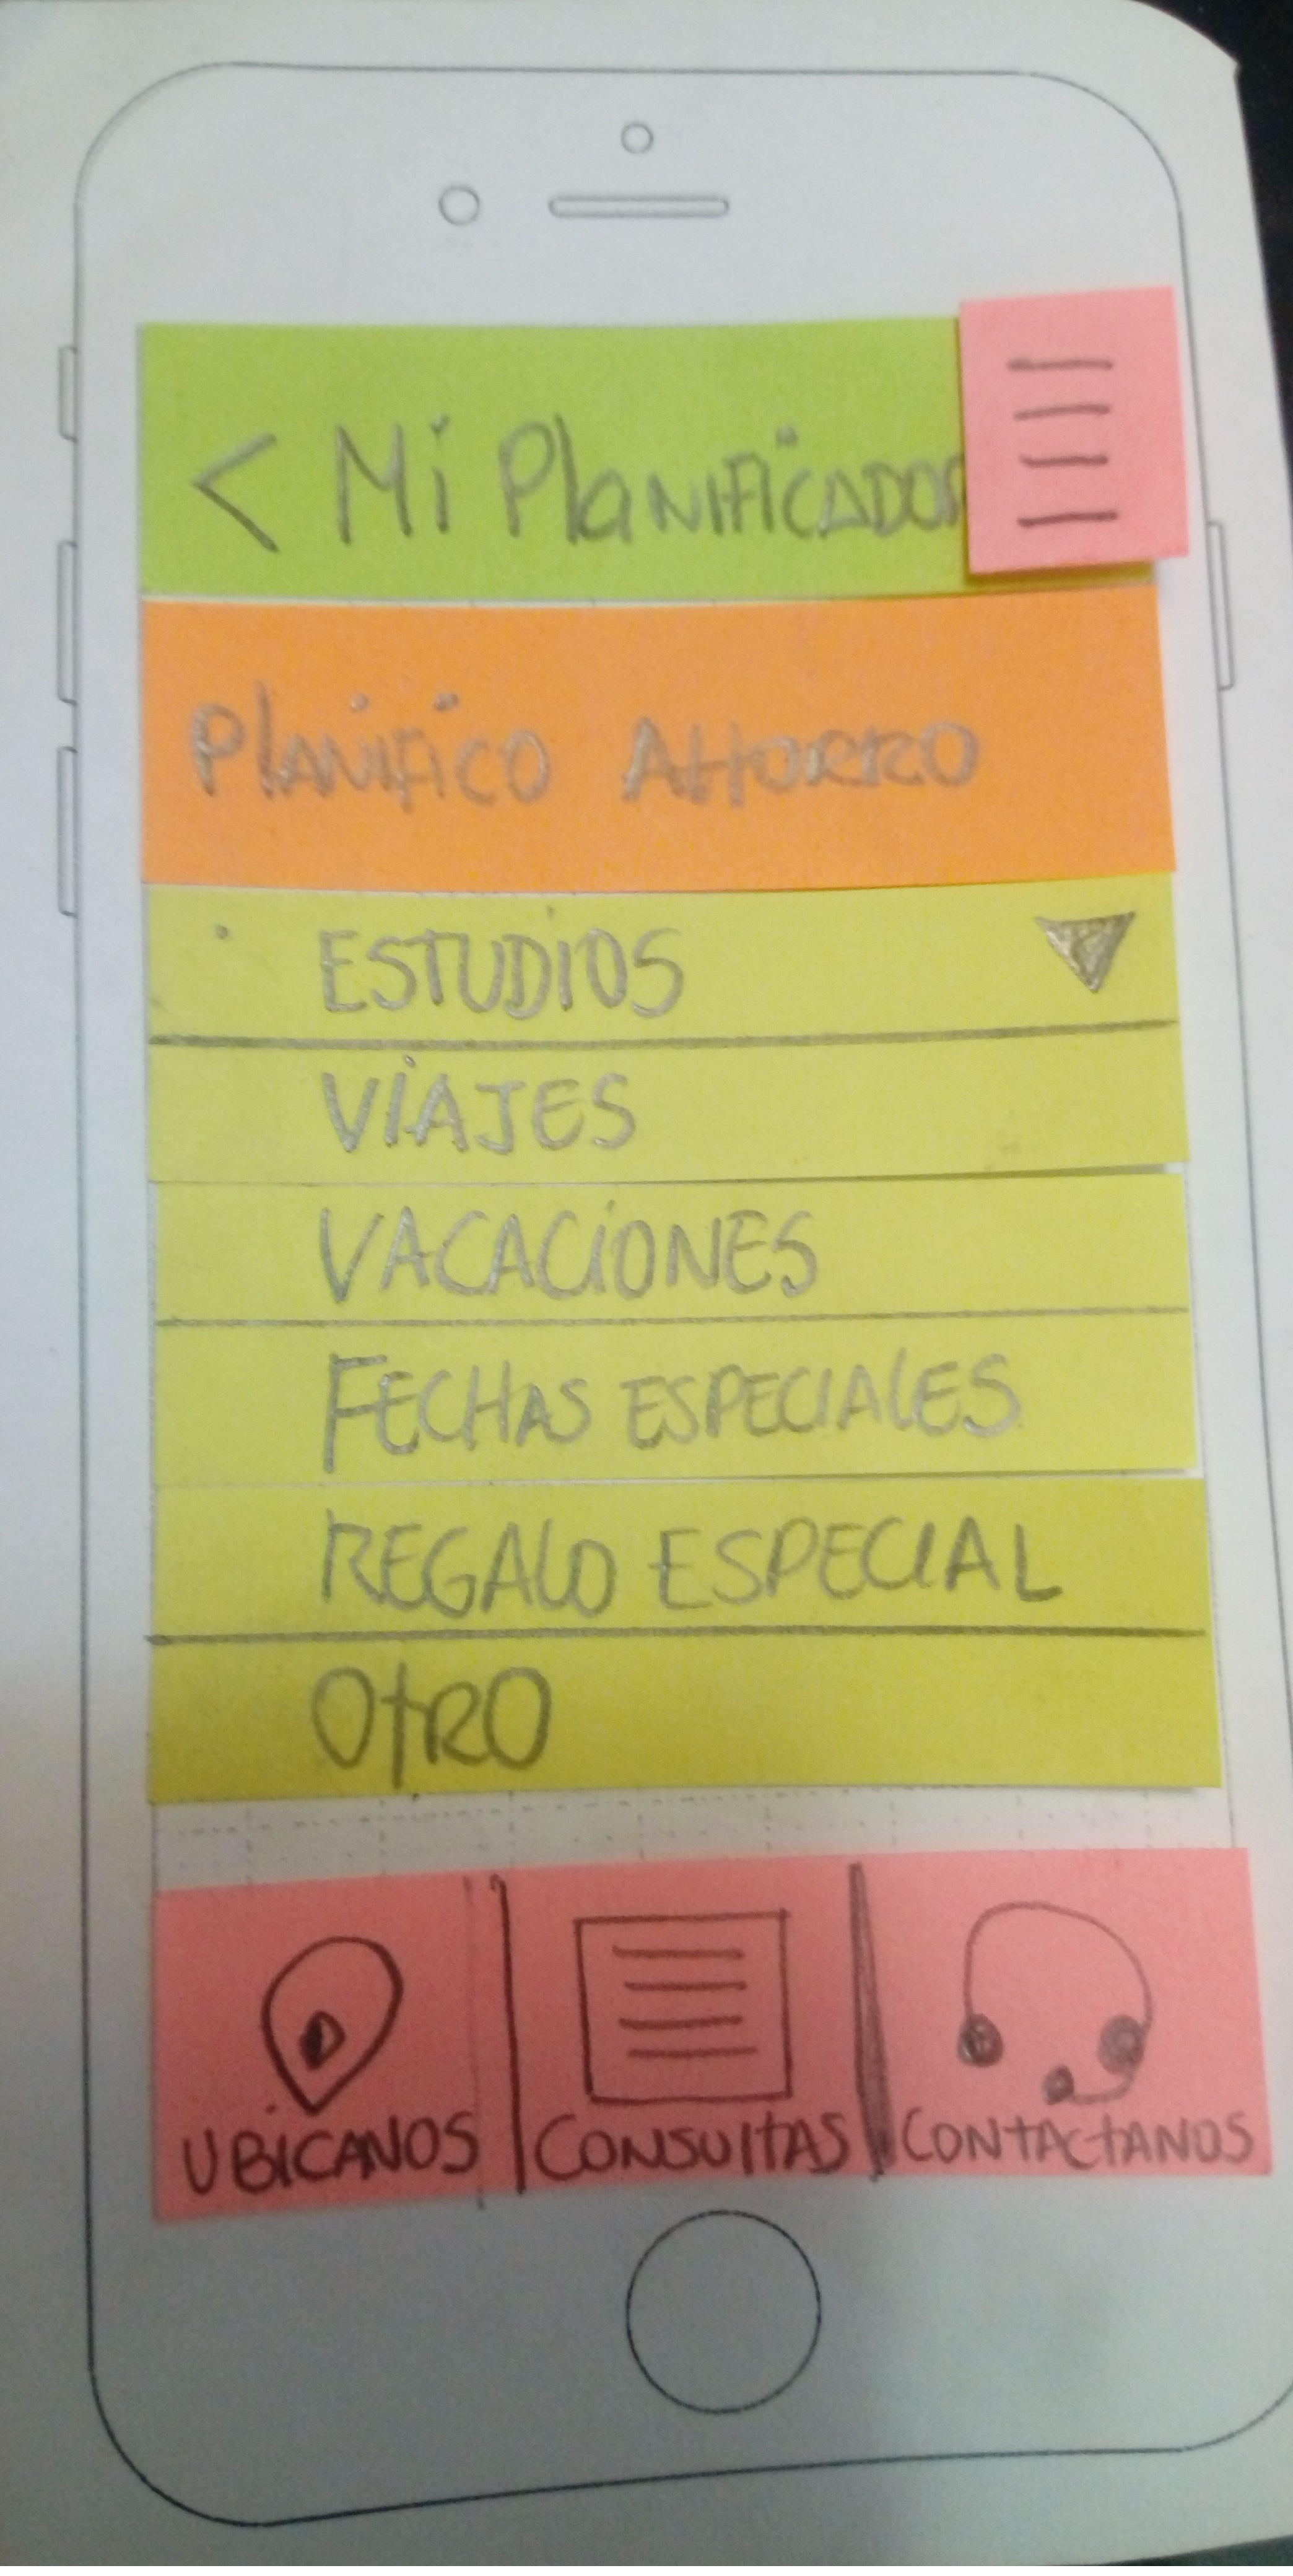 < Mi PlanificADOR
PlANifico AHORRO
ESTUDIOS
ViAJES
VACACiONES
FECHAS ESPECIALES
REGALO ESPECIAL
OtRO
UBiCANOS
CONSULTAS
CONTACTANOS